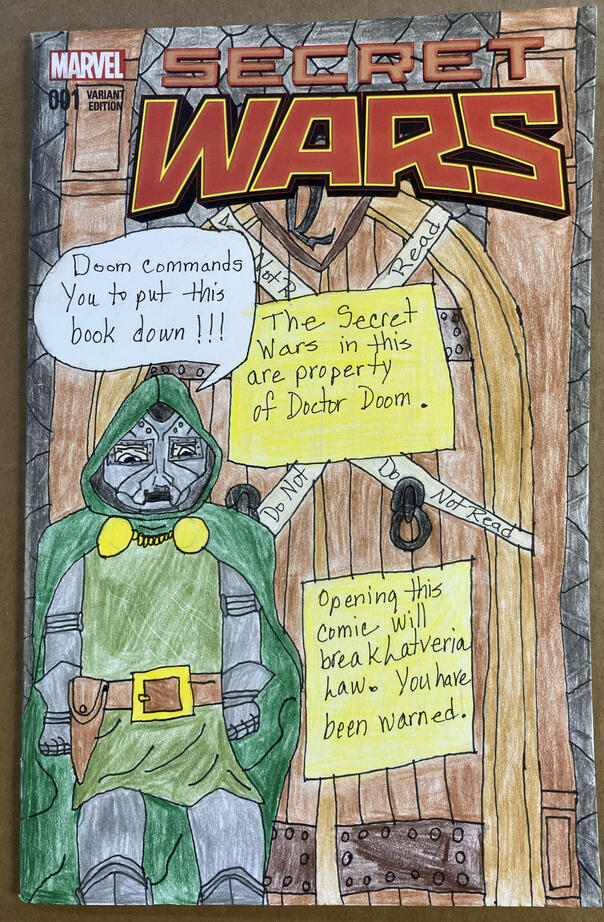 MARVEL
SECRET
001 VARIANT
EDITION
WARS
Doom commands
You to put this
book down !!!
Not R
Read
The Secret
Wars in this
are property
of Doctor Doom.
Do Not
Do Not Read
Opening this
comic will
break Latveria
Law. You have
been warned.